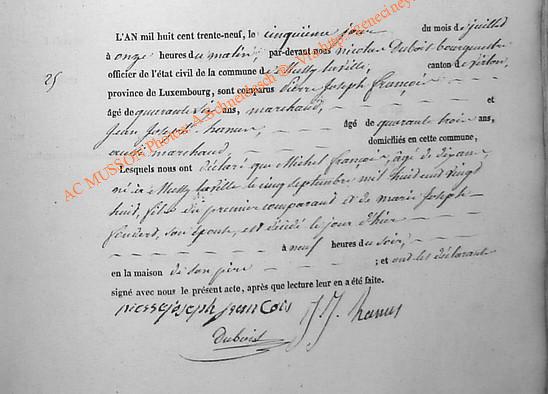 L'AN mil huit cent trente-neuf, le cinquième jour du mois de juillet
à onze heures du matin, par-devant nous nicolas Dubois bourguemestre
25
officier de l'état civil de la commune de Mussy la ville, canton de virton,
province de Luxembourg, sont comparus Pierre Joseph françois
âgé de quarante six ans, marchand, et
Jean Joseph hanus, âgé de quarante trois ans,
aussi marchand. domiciliés en cette commune,
Lesquels nous ont déclaré que Michel françois, âgé de dix ans,
né à Mussy la ville le cinq septembre mil huit cent vingt
huit, fils du premier comparant et de marie Joseph
son épouse, est décédé le jour d'hier
à neuf heures du soir,
en la maison de son père ; et ont les déclarants
signé avec nous le présent acte, après que lecture leur en a été faite.
pierre joseph francois J J hanus
Dubois
AC MUSSON Photos A.Schneidesch @ Via http://genecineyrol